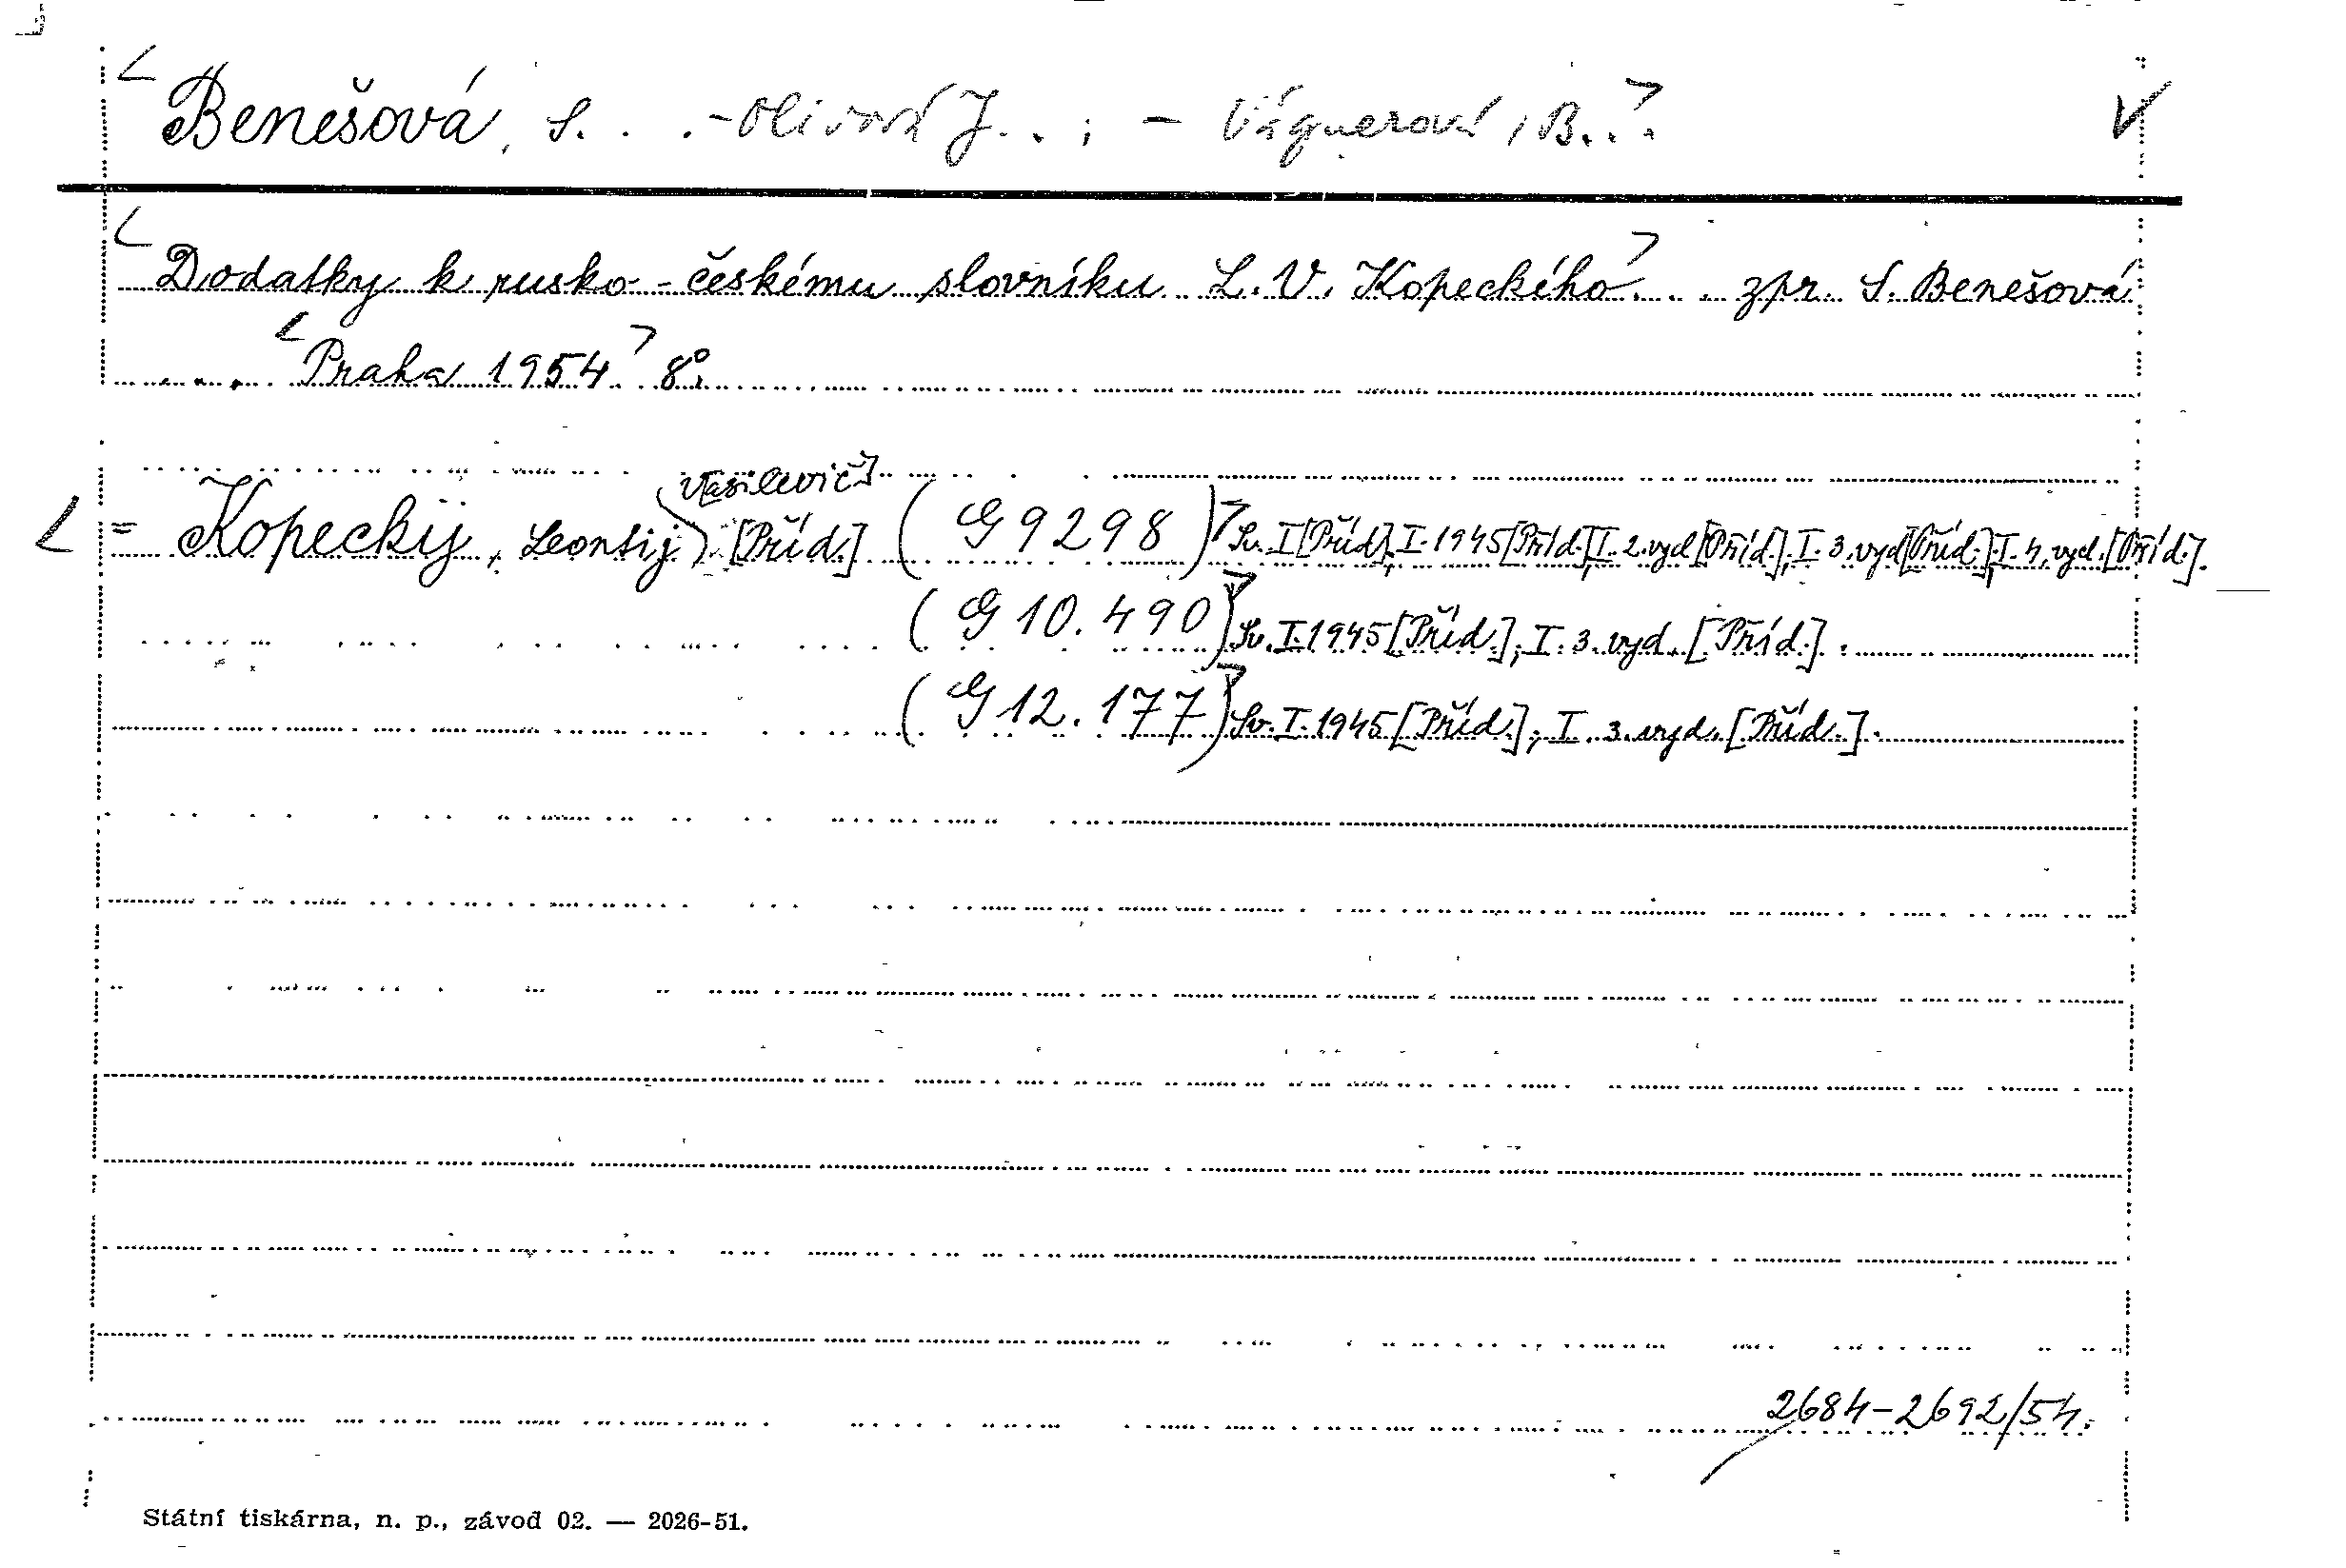 Benešová, S. . . - Olivová J. . ; - Vágnerová, B. . .
Dodatky k rusko-českému slovníku L. V. Kopeckého . . . zpr. S. Benešová
. . . Praha 1954 8°.
Vasilevič
= Kopeckij, Leontij [Příd.] (G 9298) Sv. I [Příd.], I. 1945 [Příd.], I. 2. vyd. [Příd.], I. 3. vyd. [Příd.], I. 4. vyd. [Příd.].
(G 10.490) Sv. I. 1945 [Příd.], I. 3. vyd. [Příd.].
(G 12.177) Sv. I. 1945 [Příd.], I. 3. vyd. [Příd.].
2684-2692/54.
Státní tiskárna, n. p., závod 02. — 2026-51.